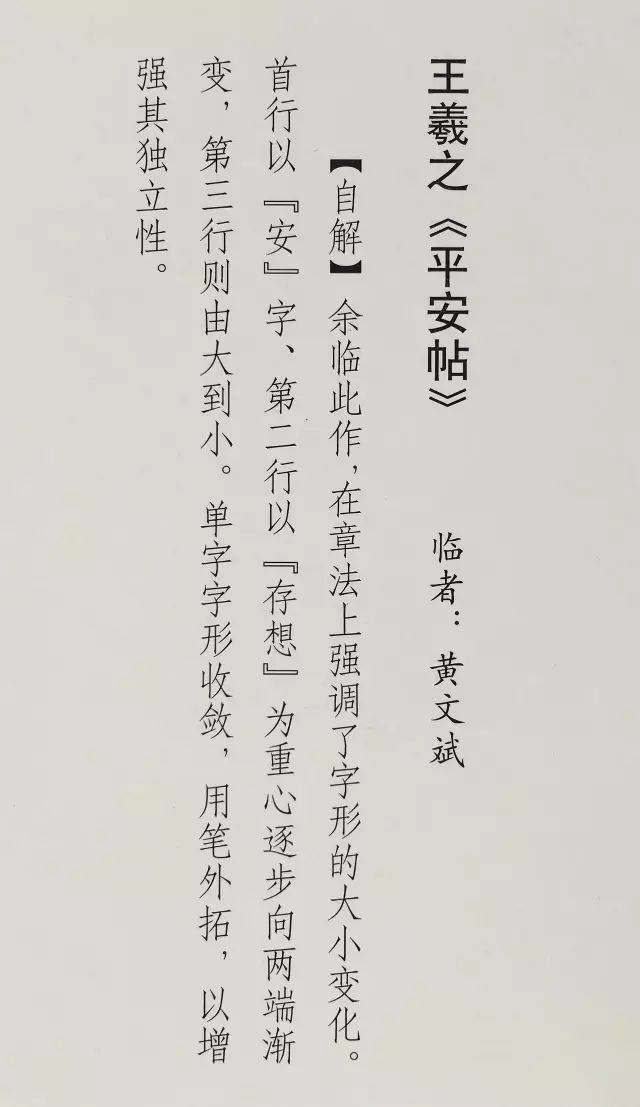 王羲之《平安帖》 临者：黄文斌
【自解】余临此作，在章法上强调了字形的大小变化。
首行以『安』字、第二行以『存想』为重心逐步向两端渐
变，第三行则由大到小。单字字形收敛，用笔外拓，以增
强其独立性。